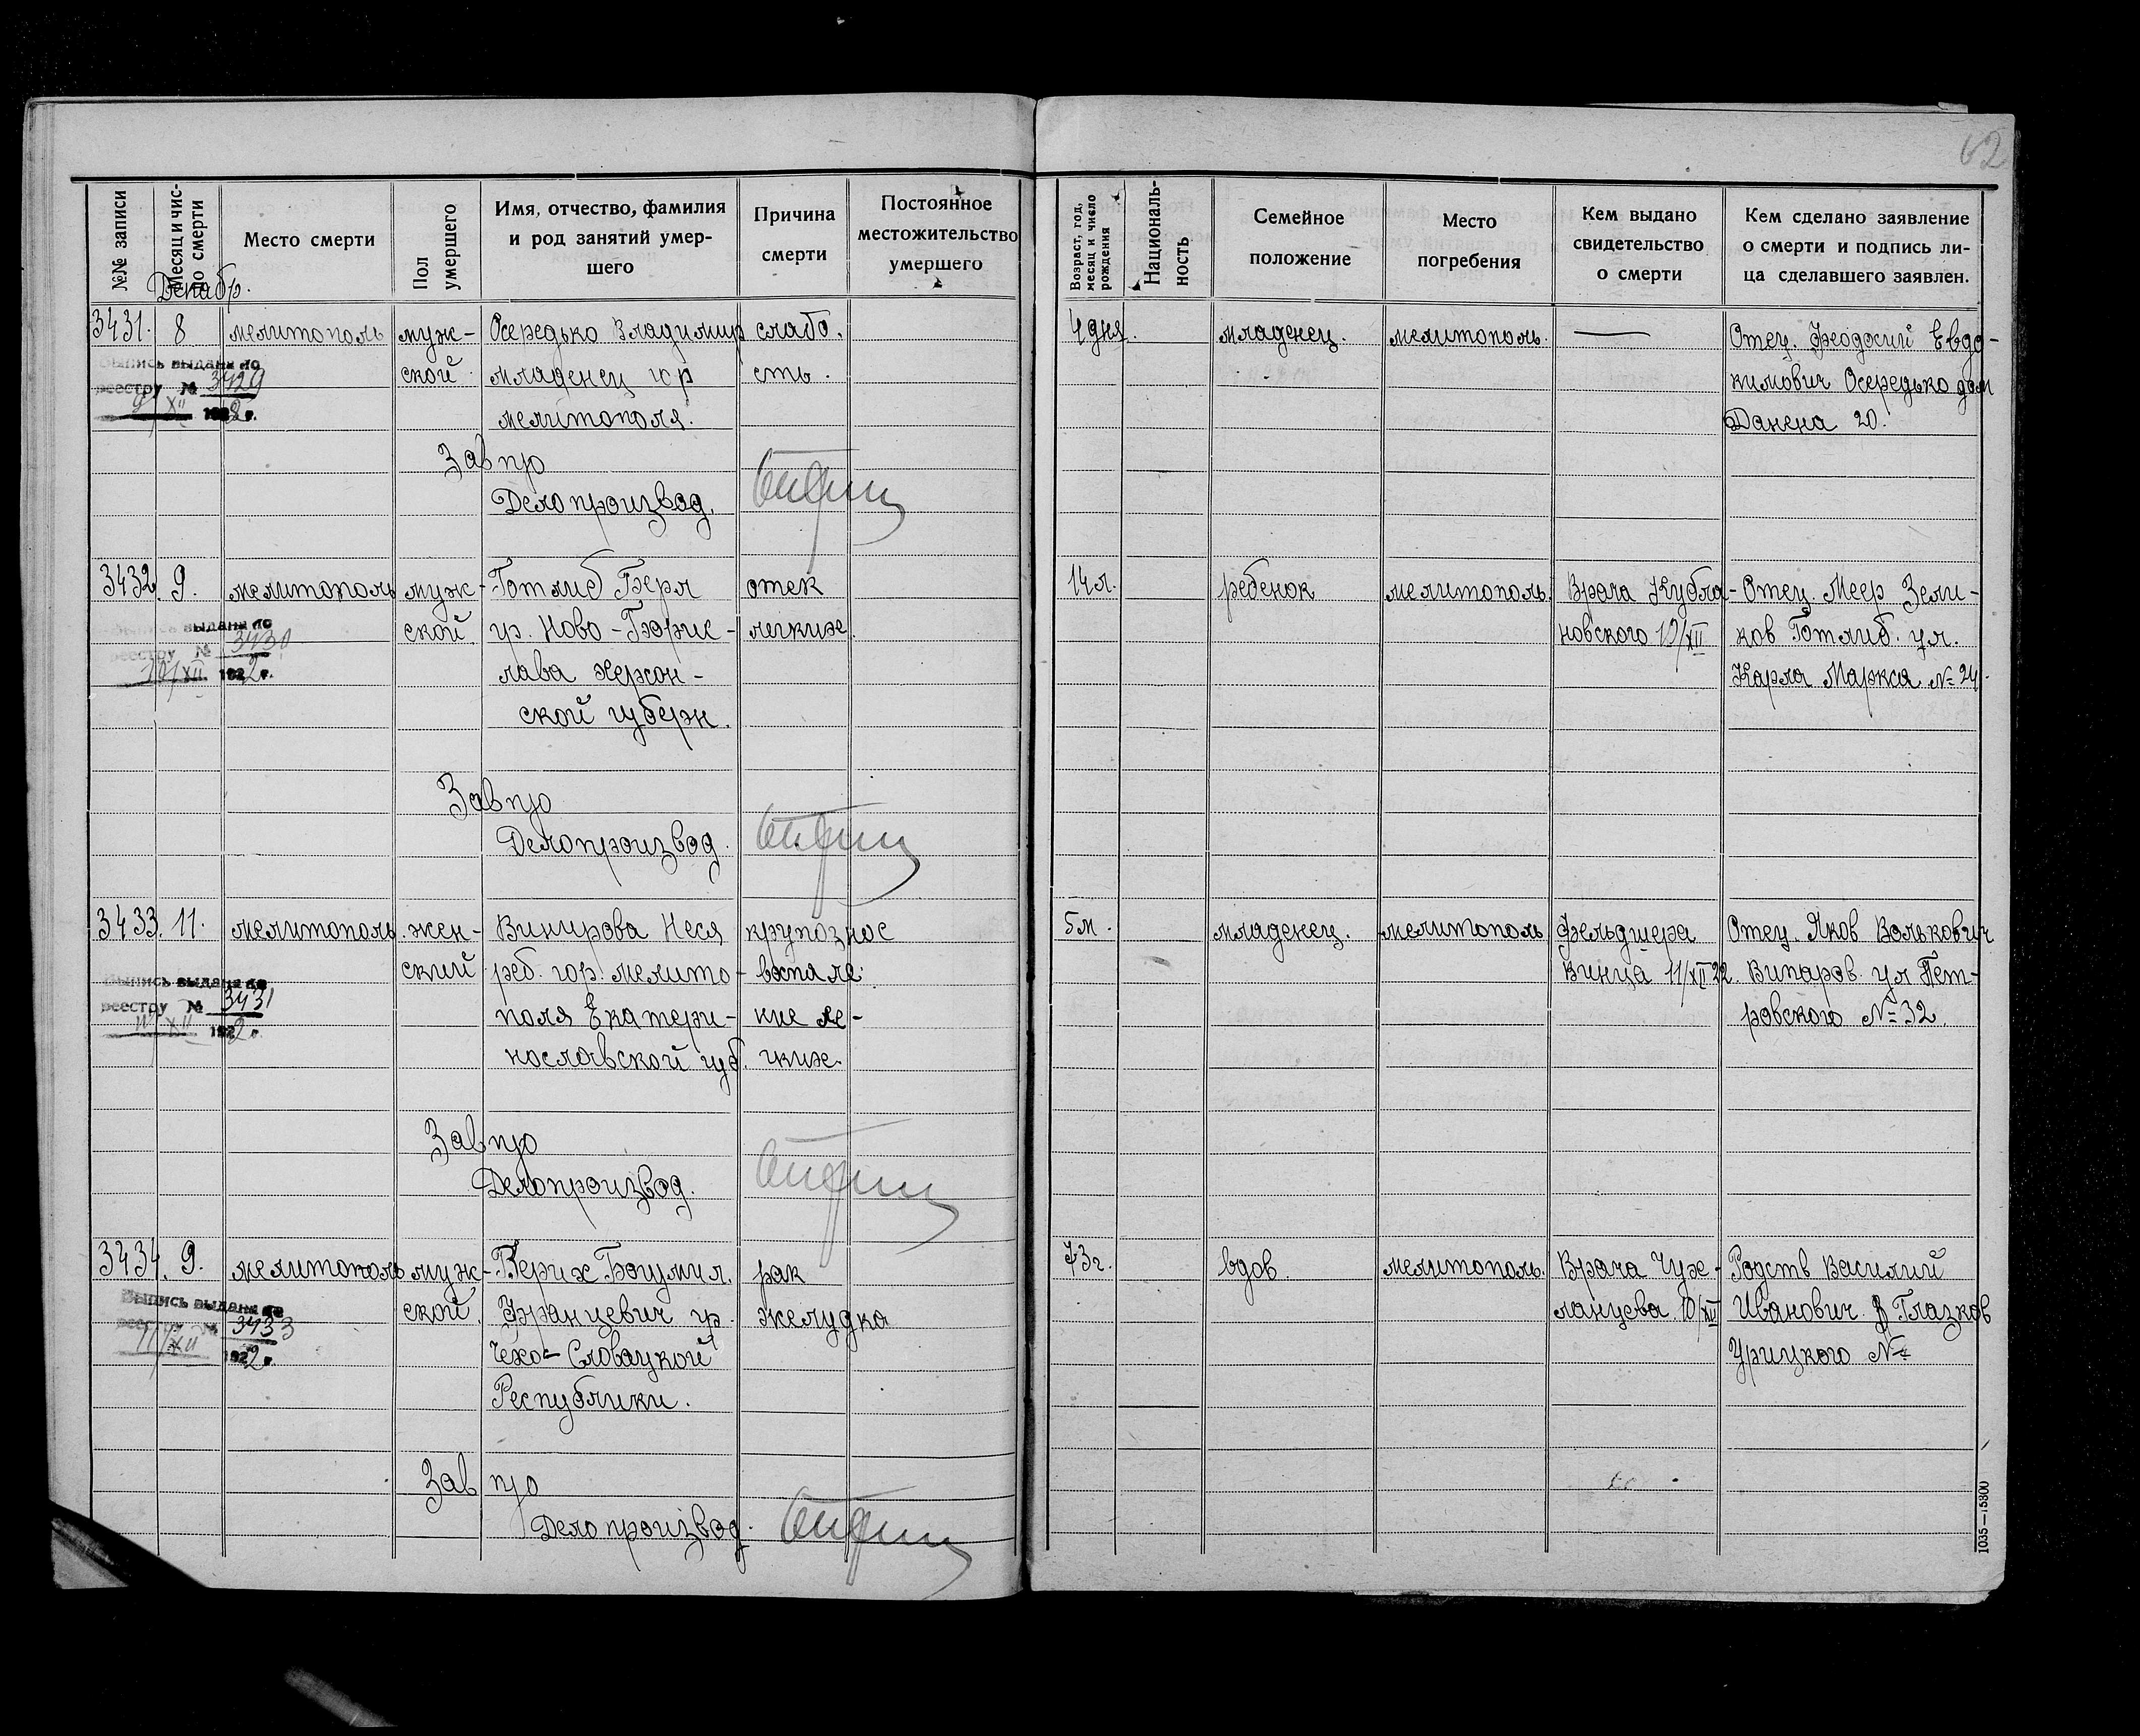 62
№№ записи
Месяц и чис-
ло смерти
Место смерти
Пол
умершего
Имя, отчество, фамилия
и род занятий умер-
шего
Причина
смерти
Постоянное
местожительство
умершего
Возраст, год,
месяц и число
рождения
Националь-
ность
Семейное
положение
Место
погребения
Кем выдано
свидетельство
о смерти
Кем сделано заявление
о смерти и подпись ли-
ца сделавшего заявлен.
Декабр.
3431. 8 мелитополь муж- Осередько Владимир слабо. 4 дня. младенец. мелитополь. — Отец. Феодосий Евдо-
Выпись выдана по
ской младенец гор сть. кимович Осередько дом
реестру № 3429
мелитополя. Данена 20.
9/XII 1922 г.
Зав п/о
Делопроизвод.
3432. 9. мелитополь муж- Готлиб Берл отек 14 л. ребенок мелитополь. Врача Кубла- Отец. Меер Зели-
Выпись выдана по
ской гр. Ново-Борис- легких. новского 10/XII ков Готлиб. ул.
реестру № 3430
лава херсон- Карла Маркса № 24.
10/XII. 1922 г.
ской губерн.
Зав п/о
Делопроизвод.
3433. 11. мелитополь. жен- Винирова Неся крупозное 5 м. младенец. мелитополь фельдшера Отец. Яков Волькович
ский реб. гор. мелито- воспале- 11/XII 22. ул Пет-
Выпись выдана по
реестру № 3431
поля Екатери- ние ле- ровского № 32.
11/XII 1922 г.
нославской губ. гких.
Зав п/о
Делопроизвод.
3434. 9. мелитополь муж- Верих Богумил. рак 73 г. вдов. мелитополь. Врача Чух- Родств Василий
Выпись выдана по
ской. Францевич гр. желудка ланцева. 10/XII Иванович Глазков
реестру № 3433
11/XII 1922 г.
Чехо-Словацкой Урицкого №
Республики.
Зав п/о
Делопроизвод.
1035—15300